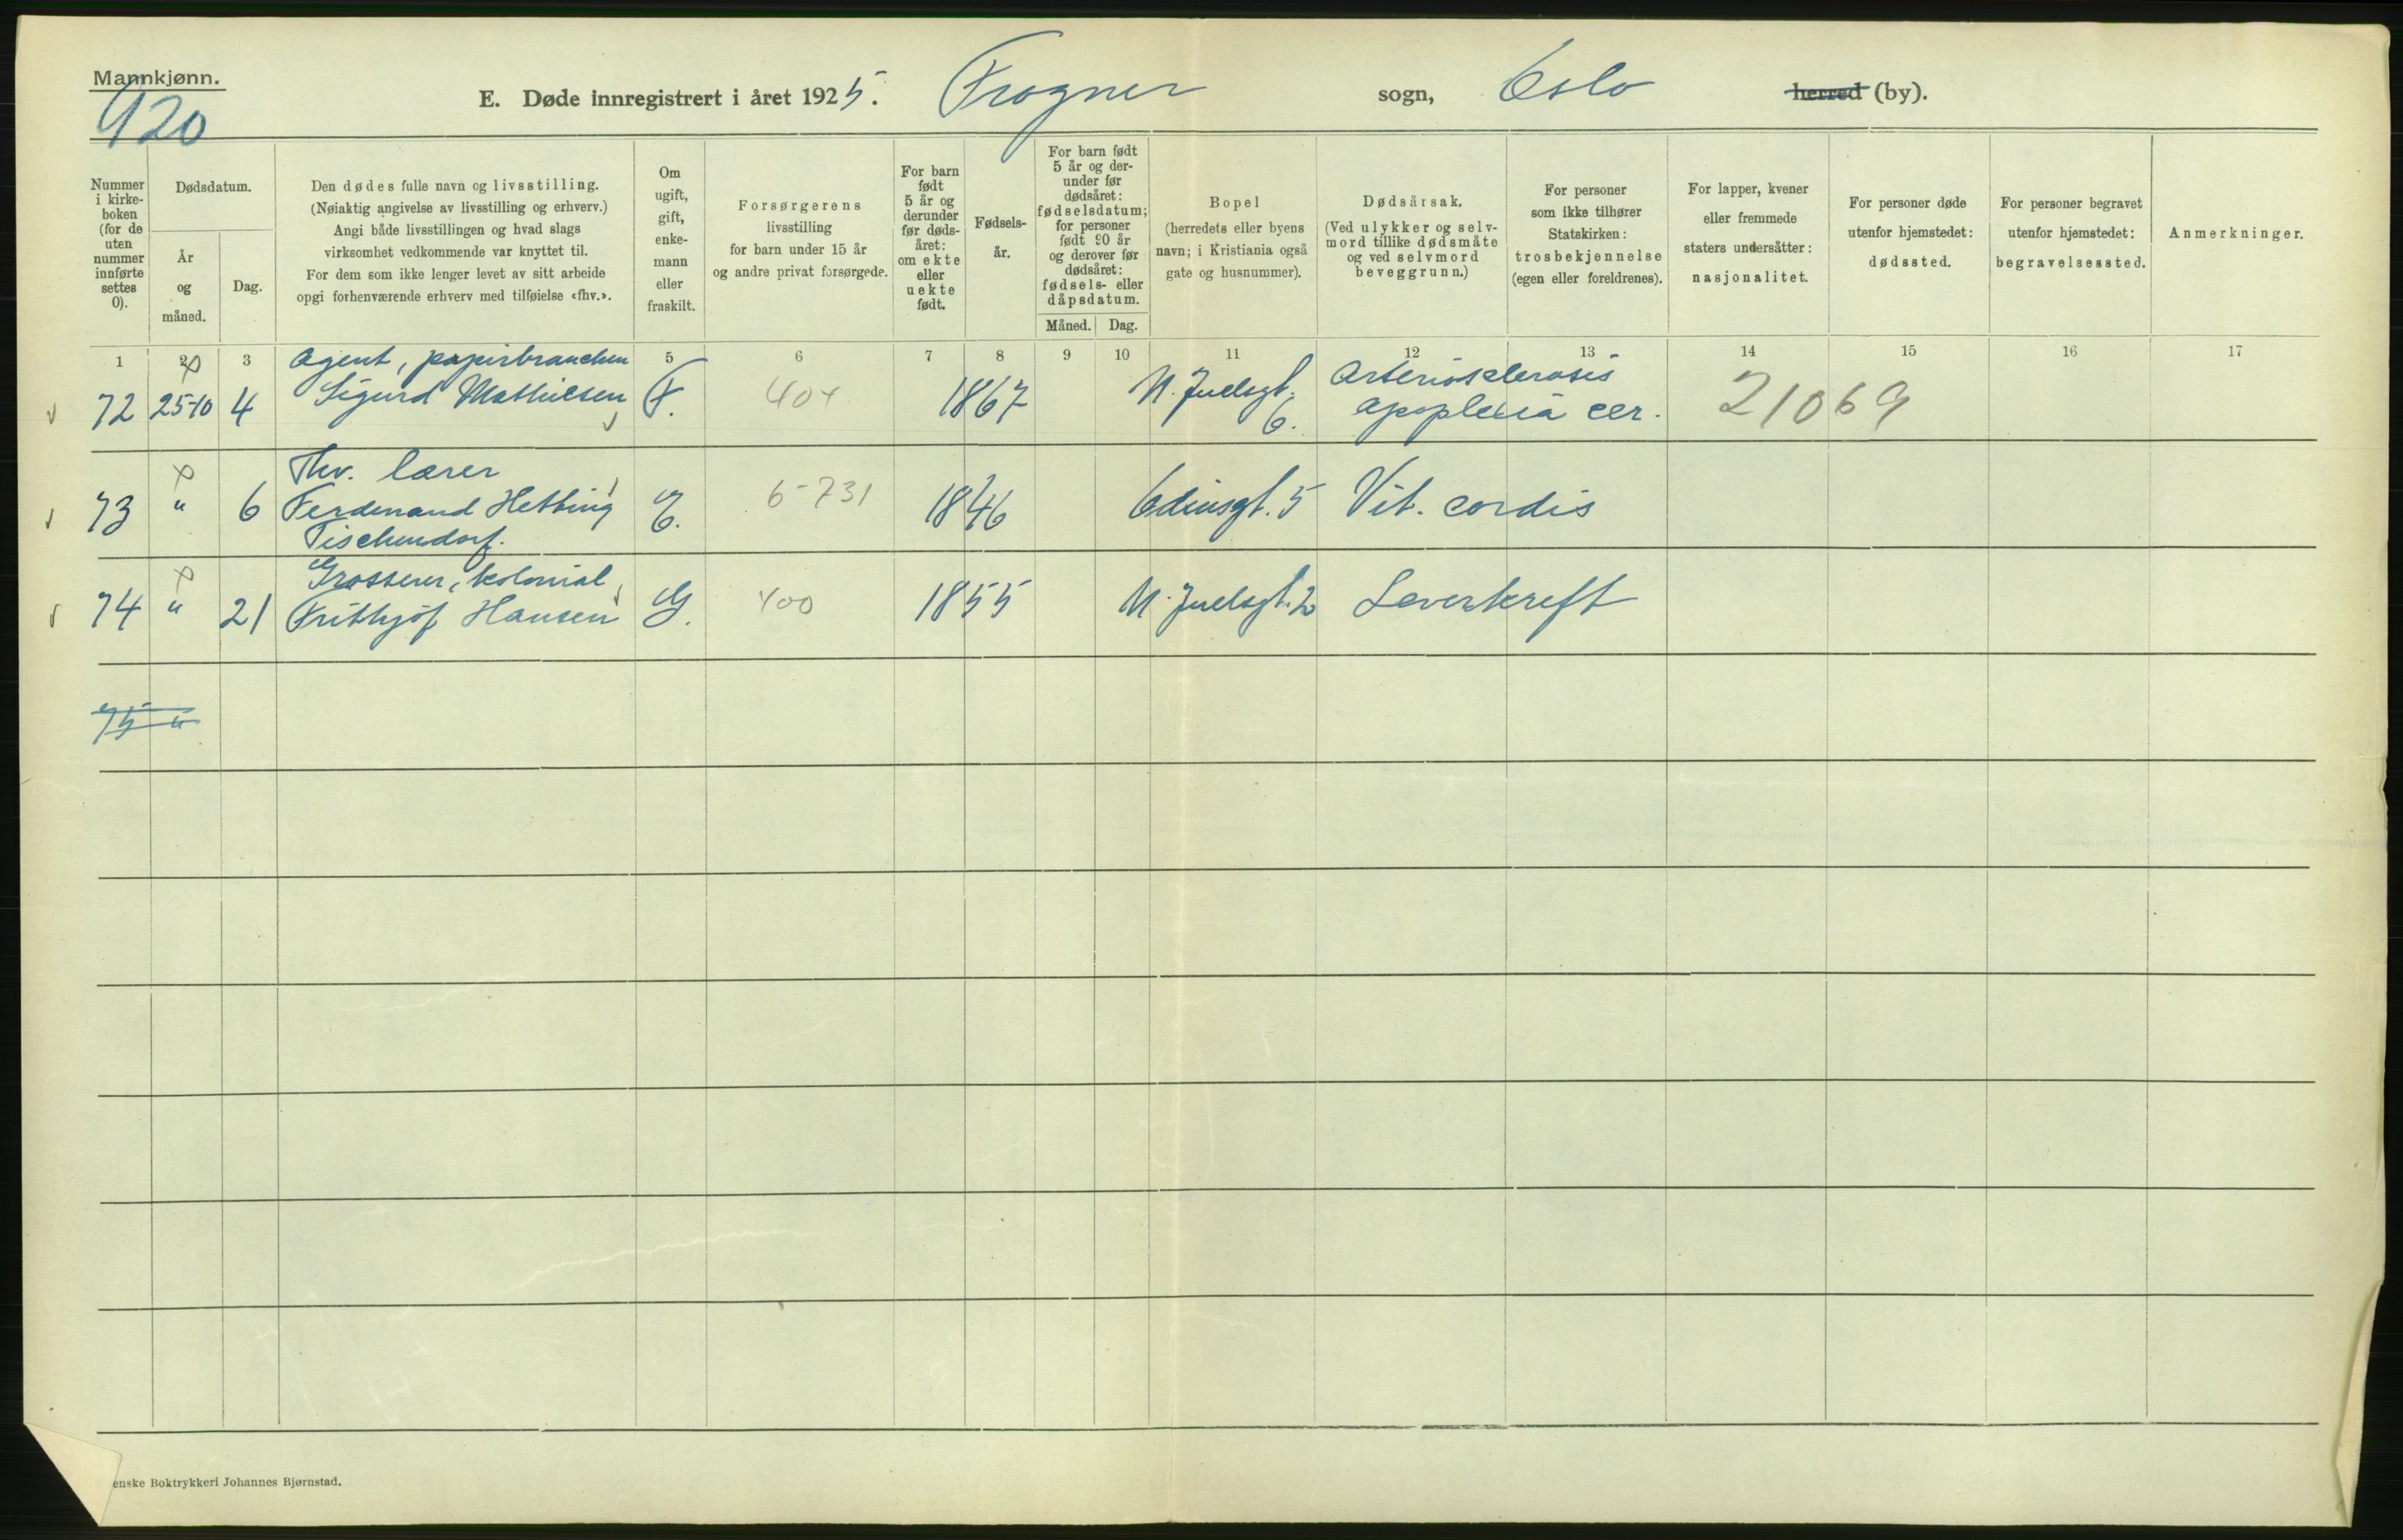 Mannkjønn.
920
E. Døde innregistrert i året 1925. Frogner sogn, Oslo herred (by).
Nummer i kirke-boken (for de uten nummer innførte settes 0).
Dødsdatum.
År og måned.
Dag.
Den dødes fulle navn og livsstilling.
(Nøiaktig angivelse av livsstilling og erhverv.)
Angi både livsstillingen og hvad slags
virksomhet vedkommende var knyttet til.
For dem som ikke lenger levet av sitt arbeide
opgi forhenværende erhverv med tilføielse «fhv.».
Om ugift, gift, enke-mann eller fraskilt.
Forsørgerens
livsstilling
for barn under 15 år
og andre privat forsørgede.
For barn født 5 år og derunder før døds-året: om ekte eller uekte født.
Fødsels-år.
For barn født 5 år og der-under før dødsåret: fødselsdatum; for personer født 90 år og derover før dødsåret: fødsels- eller dåpsdatum.
Måned. Dag.
Bopel
(herredets eller byens
navn; i Kristiania også
gate og husnummer).
Dødsårsak.
(Ved ulykker og selv-
mord tillike dødsmåte
og ved selvmord
beveggrunn.)
For personer
som ikke tilhører
Statskirken:
trosbekjennelse
(egen eller foreldrenes).
For lapper, kvener
eller fremmede
staters undersåtter:
nasjonalitet.
For personer døde
utenfor hjemstedet:
dødssted.
For personer begravet
utenfor hjemstedet:
begravelsessted.
Anmerkninger.
1 2 3 5 6 7 8 9 10 11 12 13 14 15 16 17
Agent, papirbranchen
72 25-10 4 Sigurd Mathiesen F. 404 1867 N. Juelsgt. 6. Arteriosclerosis
apoplexia cer. 21069
Fhv. lærer
73 " 6 Ferdinand Hetting E. 6-731 1846 Odinsgt. 5 Vit. cordis
Tischendorf.
Grosserer, kolonial
74 " 21 Frithjof Hansen G. 400 1855 N. Juelsgt. 2 Leverkreft
75 "
enske Boktrykkeri Johannes Bjørnstad.